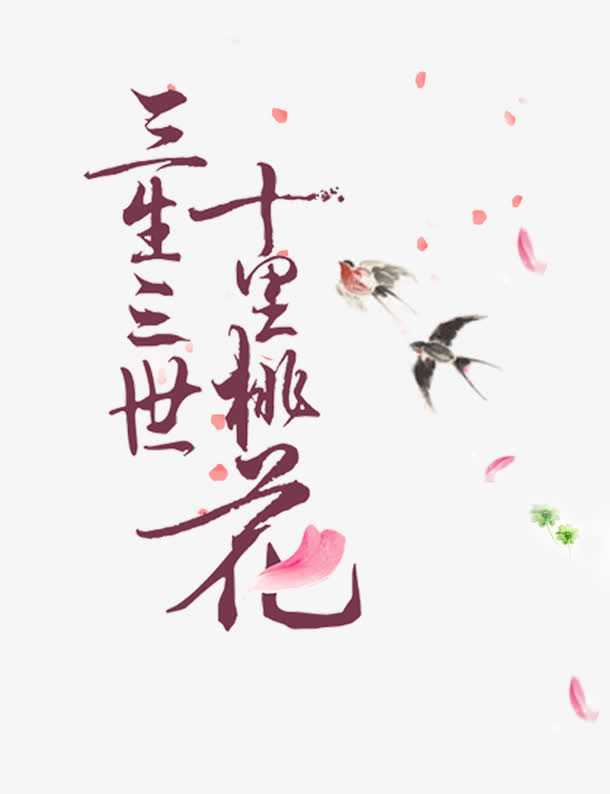 三生三世
十里桃花